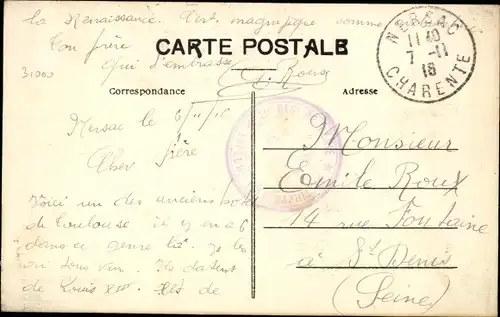 la Renaissance. C'est magnifique comme
Ton frère
qui t'embrasse
G. Roux
31000
CARTE POSTALE
NERSAC
11 40
7 -11
16
CHARENTE
Correspondance
Adresse
Nersac le 6/11/16
Cher frère
Voici un des anciens hotels
de Toulouse il y en a 6
dans ce genre là. Je les
ai tous vus. Ils datent
de Louis XIII. et de
Monsieur
Emile Roux
14 rue Fontaine
à St Denis
(Seine)